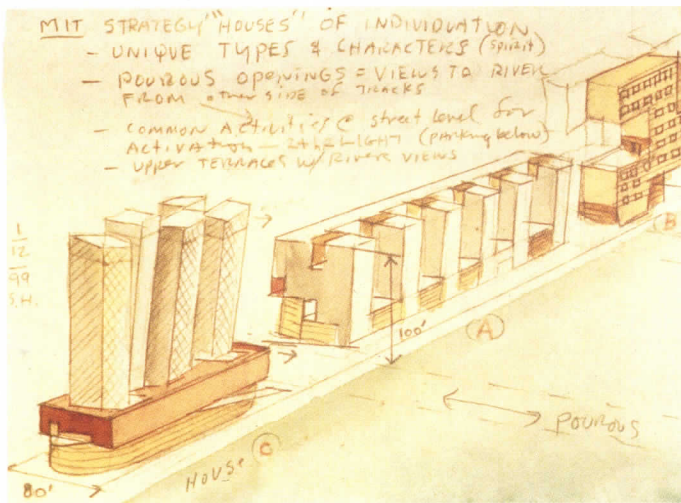 MIT STRATEGY "HOUSES" OF INDIVIDUATION
- UNIQUE TYPES & CHARACTERS (SPIRIT)
- POUROUS OPENINGS = VIEWS TO RIVER
FROM other SIDE OF TRACKS
- COMMON ACTIVITIES @ street level for
ACTIVATION — 24 hr LIGHT (parking below)
- UPPER TERRACES w/ RIVER VIEWS
1
12
99
S.H.
B
100'
A
POUROUS
HOUSE C
80'